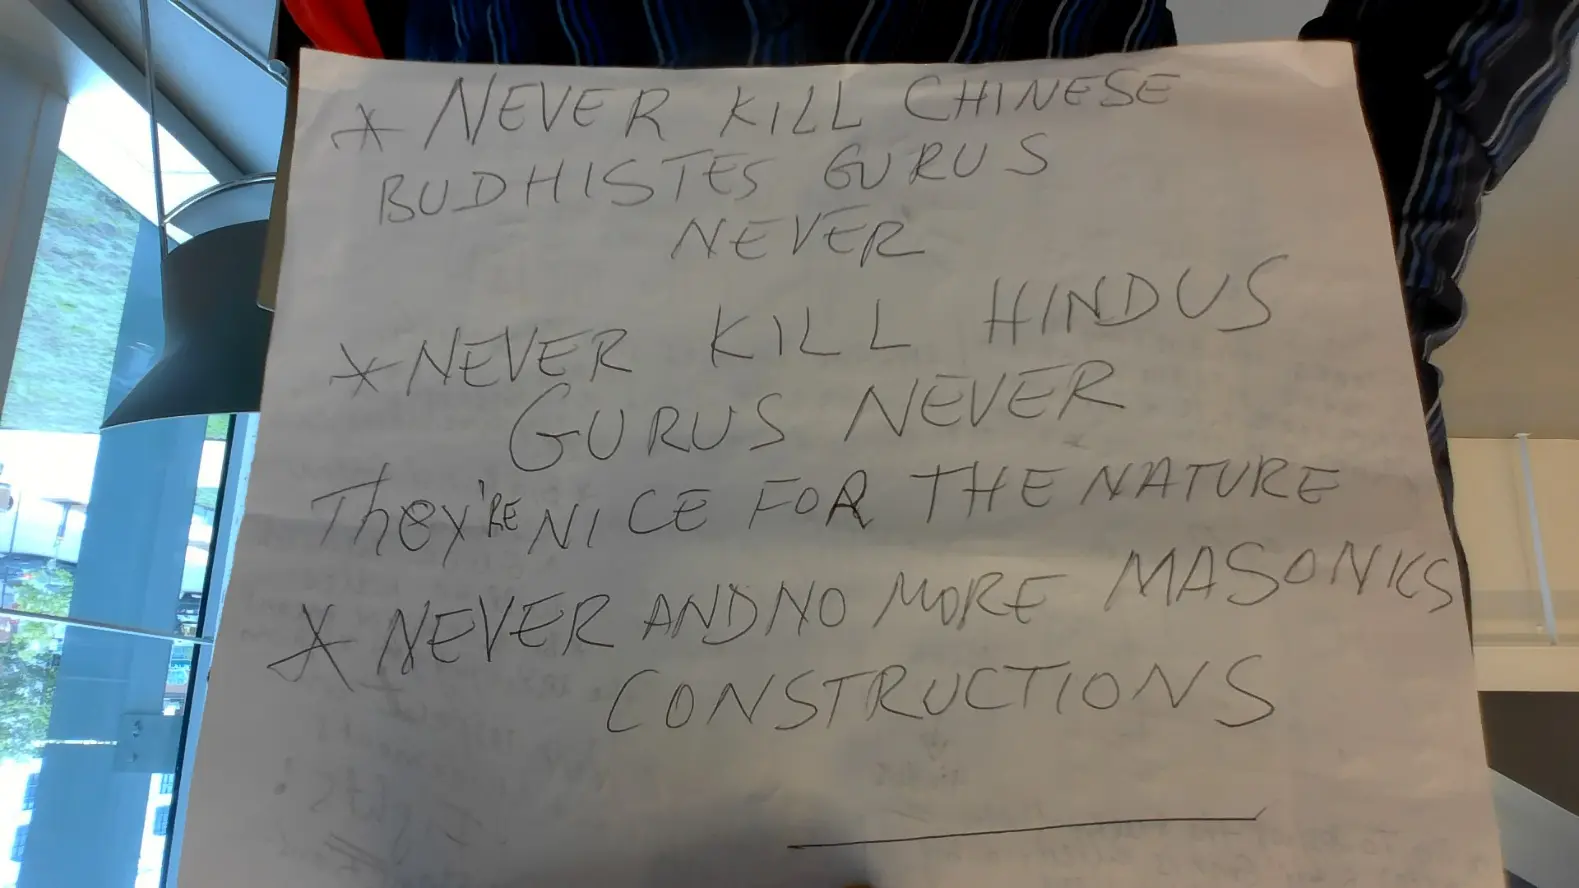 * NEVER KILL CHINESE
BUDHISTES GURUS
NEVER
* NEVER KILL HINDUS
GURUS NEVER
They'RE NICE FOR THE NATURE
* NEVER AND NO MORE MASONKS
CONSTRUCTIONS